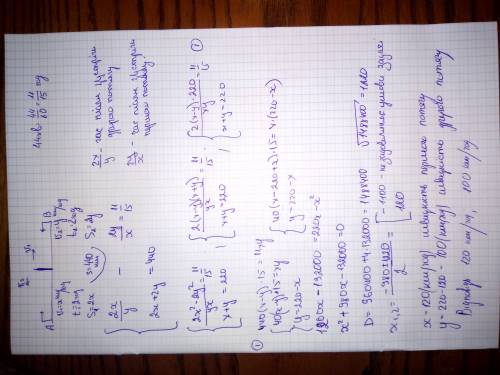 A B
v₁ v₂
44 хв = 44/60 = 11/15 год
v₁ = x км/год v₂ = y км/год
t₁ = 2 год t₂ = 2 год
S₁ = 2x S₂ = 2y
S = 440 км
2x/y − 2y/x = 11/15
2x + 2y = 440
2x/y – час після зустрічі другого потягу
2y/x – час після зустрічі першого потягу
{ (2x² − 2y²)/yx = 11/15 { 2(x−y)(x+y)/yx = 11/15 { 2(x−y)·220/xy = 11/15 ①
x + y = 220 ; x + y = 220 ; x + y = 220
① 440(x−y)·15 = 11xy
{ 40(x−y)·15 = xy { 40(x−220+x)·15 = x·(220−x)
y = 220 − x y = 220 − x
1200x − 132000 = 220x − x²
x² + 980x − 132000 = 0
D = 960400 + 4·132000 = 1488400 √1488400 = 1220
x₁,₂ = (−980 ± 1220)/2 = [ −1100 – не задовольняє умови задачі
120
x = 120 (км/год) швидкість першого потягу
y = 220 − 120 = 100 (км/год) швидкість другого потягу
Відповідь 120 км/год, 100 км/год